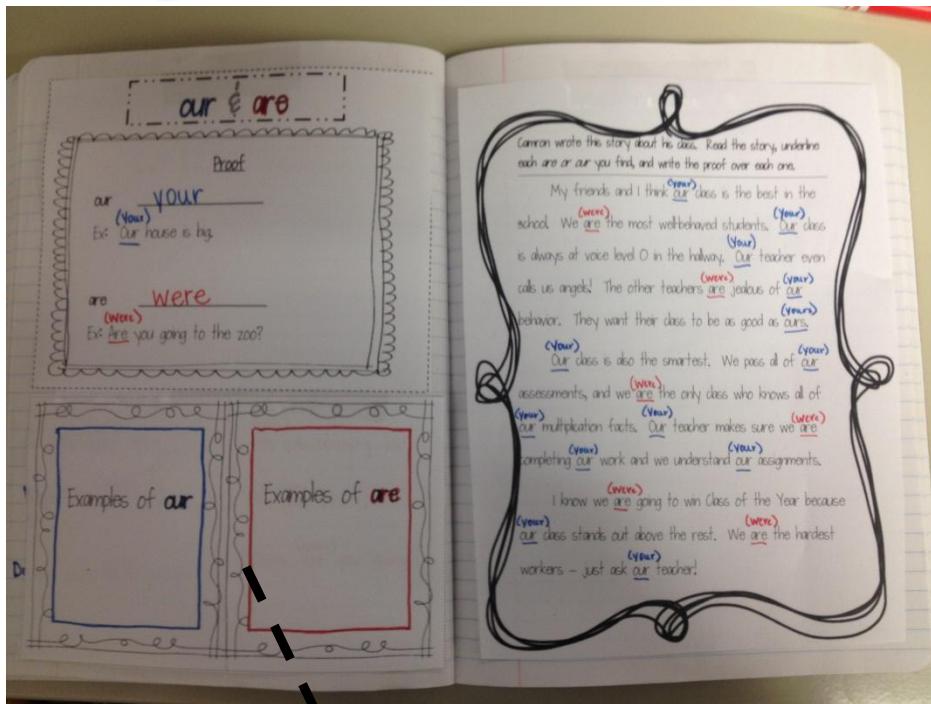 our & are
Proof
our your
(your)
Ex: Our house is big.
are were
(were)
Ex: Are you going to the zoo?
Examples of our
Examples of are
Camron wrote this story about his class. Read the story, underline
each are or our you find, and write the proof over each one.
(your)
My friends and I think our class is the best in the
(were) (your)
school. We are the most well-behaved students. Our class
(your)
is always at voice level 0 in the hallway. Our teacher even
(were) (your)
calls us angels! The other teachers are jealous of our
(yours)
behavior. They want their class to be as good as ours.
(your) (your)
Our class is also the smartest. We pass all of our
(were)
assessments, and we are the only class who knows all of
(your) (your) (were)
our multiplication facts. Our teacher makes sure we are
(your) (your)
completing our work and we understand our assignments.
(were)
I know we are going to win Class of the Year because
(your) (were)
our class stands out above the rest. We are the hardest
(your)
workers – just ask our teacher!